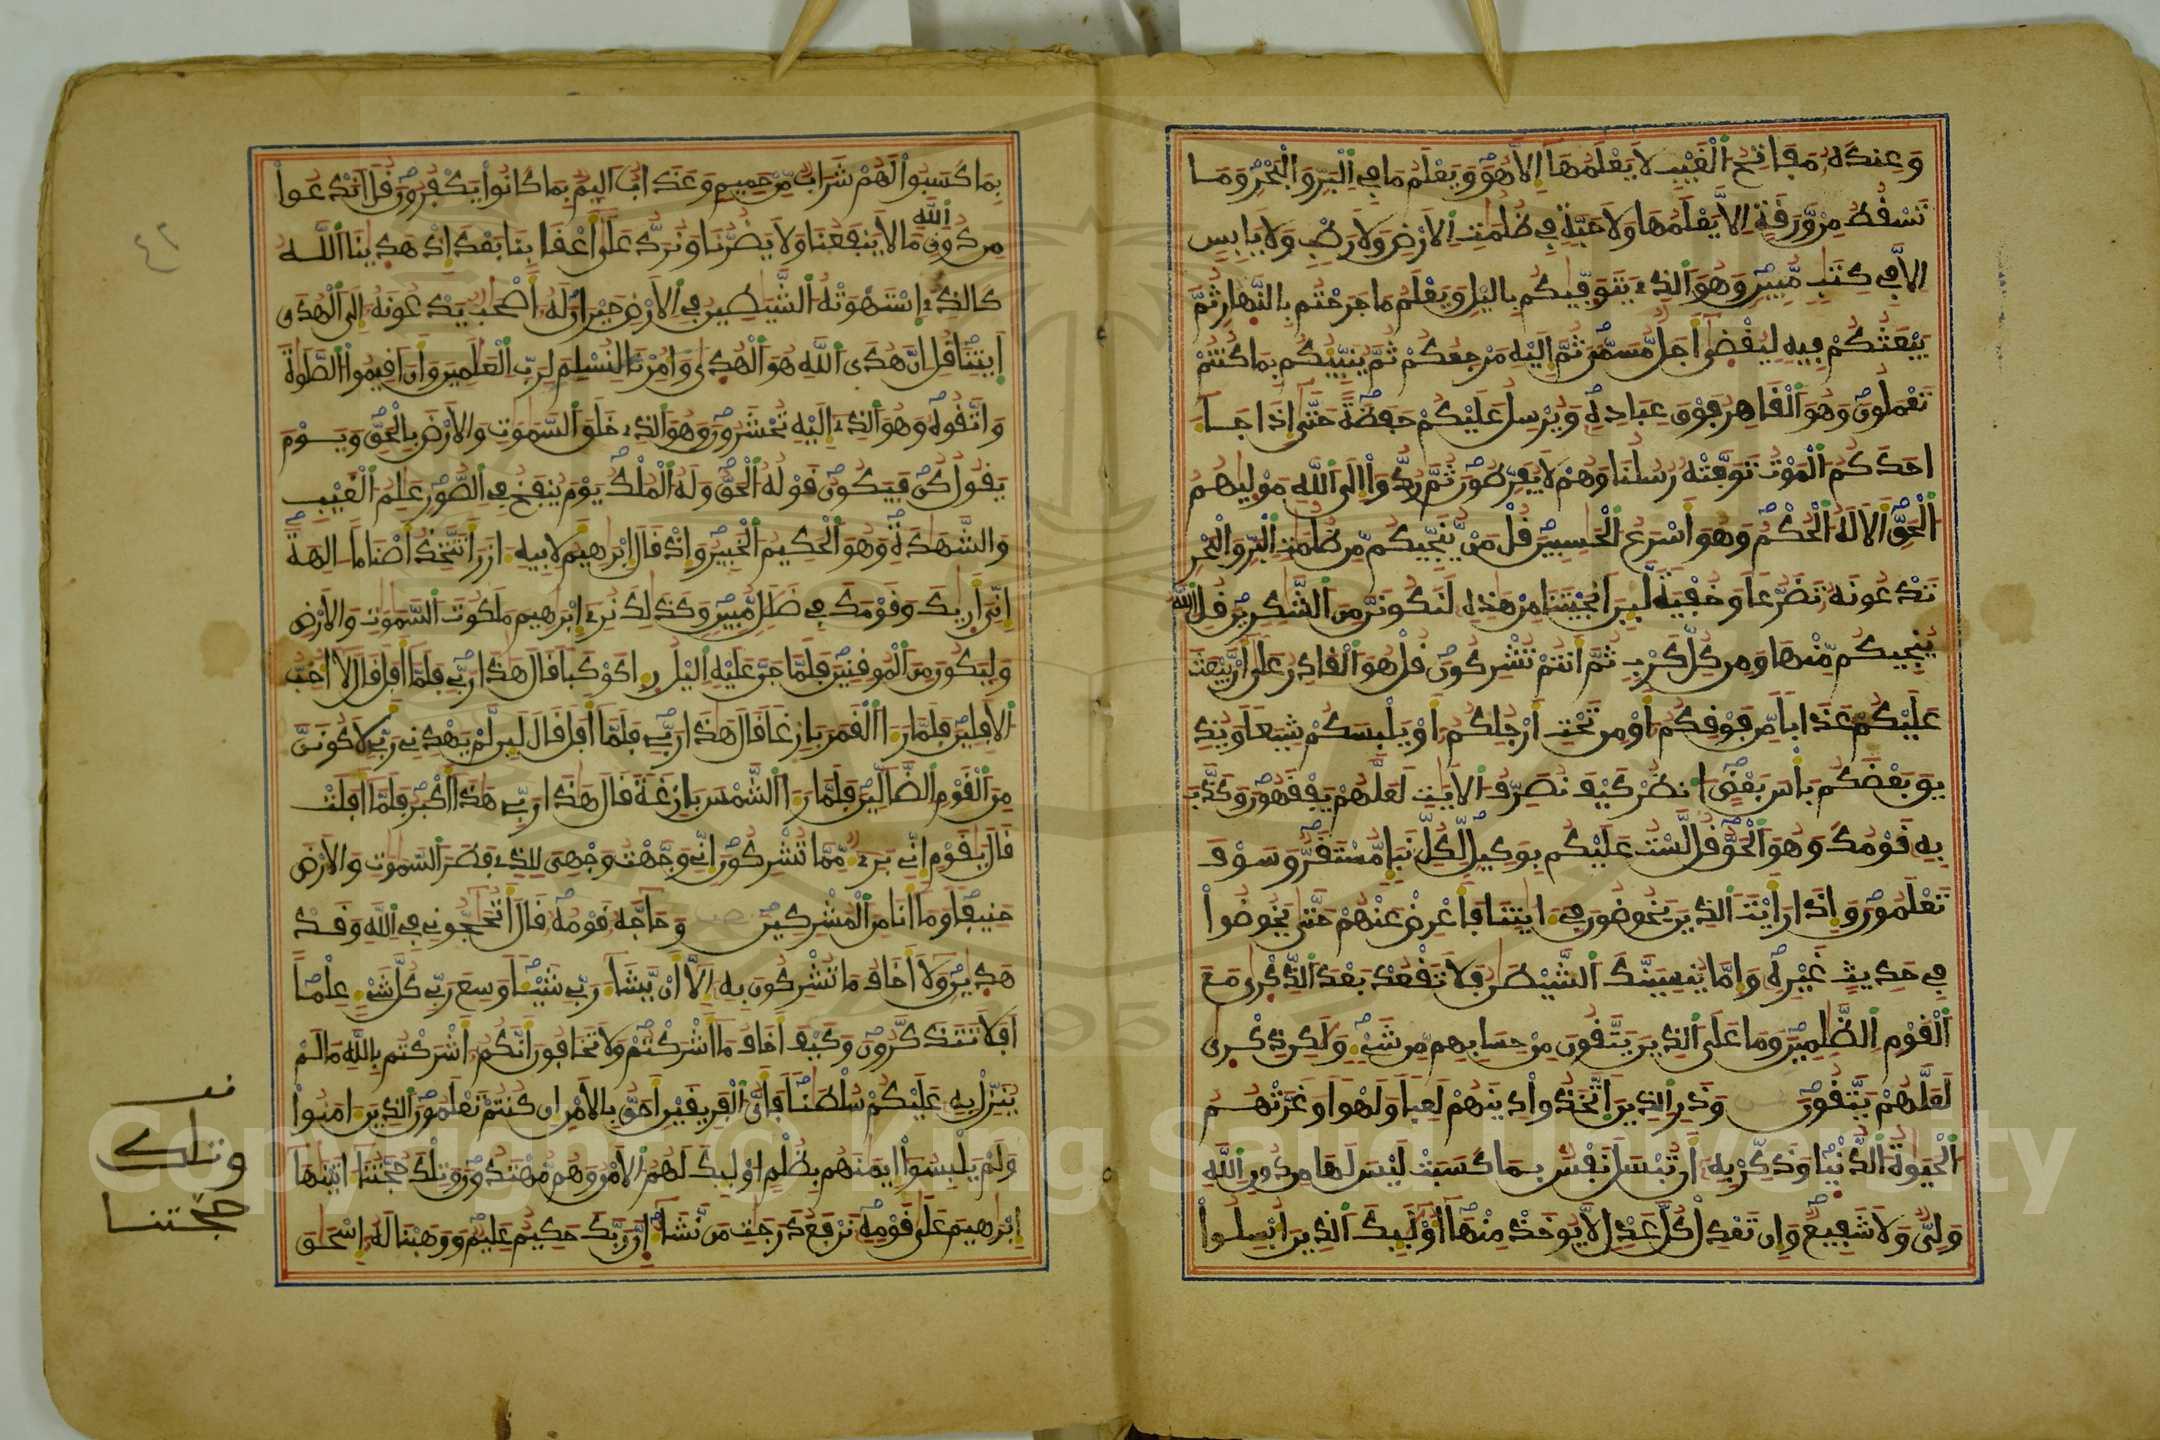 وَعِندَهُۥ مَفَاتِحُ اَ۬لْغَيْبِ لَا يَعْلَمُهَا إِلَّا هُوَ وَيَعْلَمُ مَا فِے اِ۬لْبَرِّ وَالْبَحْرِ وَمَا
تَسْقُطُ مِنْ وَّرَقَةٍ اِلَّا يَعْلَمُهَا وَلَا حَبَّةٍ فِے ظُلُمَٰتِ اِ۬لَارْضِ وَلَا رَطْبٍ وَلَا يَابِسٍ
اِلَّا فِے كِتَٰبٍ مُّبِينٍ وَهُوَ اَ۬لذِے يَتَوَفّٰيٰكُم بِاليْلِ وَيَعْلَمُ مَا جَرَحْتُم بِالنَّهَارِ ثُمَّ
يَبْعَثُكُمْ فِيهِ لِيُقْضَىٰٓ أَجَلٌ مُّسَمّيٗ ثُمَّ إِلَيْهِ مَرْجِعُكُمْ ثُمَّ يُنَبِّئُكُم بِمَا كُنتُمْ
تَعْمَلُونَ وَهُوَ اَ۬لْقَاهِرُ فَوْقَ عِبَادِهِۦ وَيُرْسِلُ عَلَيْكُمْ حَفَظَةً حَتَّىٰ إِذَا جَآءَ
احَدَكُمُ اُ۬لْمَوْتُ تَوَفَّتْهُ رُسُلُنَا وَهُمْ لَا يُفَرِّطُونَ ثُمَّ رُدُّوٓاْ إِلَى اَ۬للَّهِ مَوْلَيٰهُمُ
اُ۬لْحَقِّ أَلَا لَهُ اُ۬لْحُكْمُ وَهُوَ أَسْرَعُ اُ۬لْحَٰسِبِينَ قُلْ مَنْ يُّنَجِّيكُم مِّن ظُلُمَٰتِ اِ۬لْبَرِّ وَالْبَحْرِ
تَدْعُونَهُۥ تَضَرُّعاً وَخُفْيَةً لَّئِنَ اَنجَيْتَنَا مِنْ هَٰذِهِۦ لَنَكُونَنَّ مِنَ اَ۬لشَّٰكِرِينَ قُلِ اِ۬للَّهُ
يُنجِيكُم مِّنْهَا وَمِن كُلِّ كَرْبٍ ثُمَّ أَنتُمْ تُشْرِكُونَ قُلْ هُوَ اَ۬لْقَادِرُ عَلَىٰٓ أَنْ يَّبْعَثَ
عَلَيْكُمْ عَذَاباً مِّن فَوْقِكُمُ أَوْ مِن تَحْتِ أَرْجُلِكُمُ أَوْ يَلْبِسَكُمْ شِيَعاً وَيُذِ
يقَ بَعْضَكُم بَأْسَ بَعْضٍ ا۟نظُرْ كَيْفَ نُصَرِّفُ اُ۬لَايَٰتِ لَعَلَّهُمْ يَفْقَهُونَ وَكَذَّبَ
بِهِۦ قَوْمُكَ وَهُوَ اَ۬لْحَقُّ قُل لَّسْتُ عَلَيْكُم بِوَكِيلٍ لِّكُلِّ نَبَإٍ مُّسْتَقَرٌّ وَسَوْفَ
تَعْلَمُونَ وَإِذَا رَأَيْتَ اَ۬لذِينَ يَخُوضُونَ فِےٓ ءَايَٰتِنَا فَأَعْرِضْ عَنْهُمْ حَتَّىٰ يَخُوضُواْ
فِے حَدِيثٍ غَيْرِهِۦ وَإِمَّا يُنسِيَنَّكَ اَ۬لشَّيْطَٰنُ فَلَا تَقْعُدْ بَعْدَ اَ۬لذِّكْر۪ىٰ مَعَ
اَ۬لْقَوْمِ اِ۬لظَّٰلِمِينَ وَمَا عَلَى اَ۬لذِينَ يَتَّقُونَ مِنْ حِسَابِهِم مِّن شَےْءٍ وَلَٰكِن ذِكْر۪ىٰ
لَعَلَّهُمْ يَتَّقُونَ وَذَرِ اِ۬لذِينَ اَ۪تَّخَذُواْ دِينَهُمْ لَعِباً وَلَهْواً وَغَرَّتْهُمُ
اُ۬لْحَيَوٰةُ اُ۬لدُّنْيَا وَذَكِّرْ بِهِۦٓ أَن تُبْسَلَ نَفْسٌ بِمَا كَسَبَتْ لَيْسَ لَهَا مِن دُونِ اِ۬للَّهِ
وَلِيٌّ وَلَا شَفِيعٌ وَإِن تَعْدِلْ كُلَّ عَدْلٍ لَّا يُوخَذْ مِنْهَآ أُوْلَٰٓئِكَ اَ۬لذِينَ أُبْسِلُواْ
بِمَا كَسَبُواْ لَهُمْ شَرَابٌ مِّنْ حَمِيمٍ وَعَذَابٌ اَلِيمٌ بِمَا كَانُواْ يَكْفُرُونَ قُلَ اَنَدْعُواْ
مِن دُونِ اِ۬للَّهِ مَا لَا يَنفَعُنَا وَلَا يَضُرُّنَا وَنُرَدُّ عَلَىٰٓ أَعْقَابِنَا بَعْدَ إِذْ هَد۪يٰنَا اَ۬للَّهُ
كَالذِے اِ۪سْتَهْوَتْهُ اُ۬لشَّيَٰطِينُ فِے اِ۬لَارْضِ حَيْرَانَ لَهُۥٓ أَصْحَٰبٌ يَدْعُونَهُۥٓ إِلَى اَ۬لْهُدَى
اَ۪يتِنَا قُلِ اِنَّ هُدَى اَ۬للَّهِ هُوَ اَ۬لْهُد۪ىٰ وَأُمِرْنَا لِنُسْلِمَ لِرَبِّ اِ۬لْعَٰلَمِينَ وَأَنَ اَقِيمُواْ اُ۬لصَّلَوٰةَ
وَاتَّقُوهُ وَهُوَ اَ۬لذِےٓ إِلَيْهِ تُحْشَرُونَ وَهُوَ اَ۬لذِے خَلَقَ اَ۬لسَّمَٰوَٰتِ وَالَارْضَ بِالْحَقِّ وَيَوْمَ
يَقُولُ كُن فَيَكُونُ قَوْلُهُ اُ۬لْحَقُّ وَلَهُ اُ۬لْمُلْكُ يَوْمَ يُنفَخُ فِے اِ۬لصُّورِ عَٰلِمُ اُ۬لْغَيْبِ
وَالشَّهَٰدَةِ وَهُوَ اَ۬لْحَكِيمُ اُ۬لْخَبِيرُ وَإِذْ قَالَ إِبْرَٰهِيمُ لَابِيهِ ءَازَرَ أَتَتَّخِذُ أَصْنَاماً ـالِهَةً
اِنِّيَ أَر۪يٰكَ وَقَوْمَكَ فِے ضَلَٰلٍ مُّبِينٍ وَكَذَٰلِكَ نُرِےٓ إِبْرَٰهِيمَ مَلَكُوتَ اَ۬لسَّمَٰوَٰتِ وَالَارْضِ
وَلِيَكُونَ مِنَ اَ۬لْمُوقِنِينَ فَلَمَّا جَنَّ عَلَيْهِ اِ۬ليْلُ ر۪ء۪ا كَوْكَباً قَالَ هَٰذَا رَبِّے فَلَمَّآ أَفَلَ قَالَ لَآ أُحِبُّ
اُ۬لَافِلِينَ فَلَمَّا رَءَا اَ۬لْقَمَرَ بَازِغاً قَالَ هَٰذَا رَبِّے فَلَمَّآ أَفَلَ قَالَ لَئِن لَّمْ يَهْدِنِے رَبِّے لَأَكُونَنَّ
مِنَ اَ۬لْقَوْمِ اِ۬لضَّآلِّينَ فَلَمَّا رَءَا اَ۬لشَّمْسَ بَازِغَةً قَالَ هَٰذَا رَبِّے هَٰذَآ أَكْبَرُ فَلَمَّآ أَفَلَتْ
قَالَ يَٰقَوْمِ إِنِّے بَرِےٓءٌ مِّمَّا تُشْرِكُونَ إِنِّے وَجَّهْتُ وَجْهِيَ لِلذِے فَطَرَ اَ۬لسَّمَٰوَٰتِ وَالَارْضَ
حَنِيفاً وَمَآ أَنَا مِنَ اَ۬لْمُشْرِكِينَ وَحَآجَّهُۥ قَوْمُهُۥ قَالَ أَتُحَٰٓجُّونِے فِے اِ۬للَّهِ وَقَدْ
هَد۪يٰنِ وَلَآ أَخَافُ مَا تُشْرِكُونَ بِهِۦٓ إِلَّآ أَنْ يَّشَآءَ رَبِّے شَيْـٔاً وَسِعَ رَبِّے كُلَّ شَےْءٍ عِلْماً
اَفَلَا تَتَذَكَّرُونَ وَكَيْفَ أَخَافُ مَآ أَشْرَكْتُمْ وَلَا تَخَافُونَ أَنَّكُمُ أَشْرَكْتُم بِاللَّهِ مَا لَمْ
يُنَزِّلْ بِهِۦ عَلَيْكُمْ سُلْطَٰناً فَأَيُّ اُ۬لْفَرِيقَيْنِ أَحَقُّ بِالَامْنِ إِن كُنتُمْ تَعْلَمُونَ اَ۬لذِينَ ءَامَنُواْ
وَلَمْ يَلْبِسُوٓاْ إِيمَٰنَهُم بِظُلْمٍ اُوْلَٰٓئِكَ لَهُمُ اُ۬لَامْنُ وَهُم مُّهْتَدُونَ وَتِلْكَ حُجَّتُنَآ ءَاتَيْنَٰهَآ
إِبْرَٰهِيمَ عَلَىٰ قَوْمِهِۦ نَرْفَعُ دَرَجَٰتِ مَن نَّشَآءُ اِنَّ رَبَّكَ حَكِيمٌ عَلِيمٌ وَوَهَبْنَا لَهُۥٓ إِسْحَٰقَ
٤٢
وتلك
حجتنا
Copyright © King Saud University